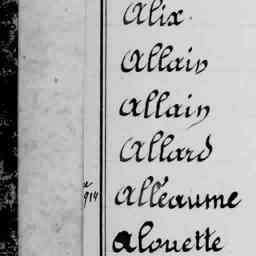 Alix
Allain
Allain
Allard
Alléaume
Alouette